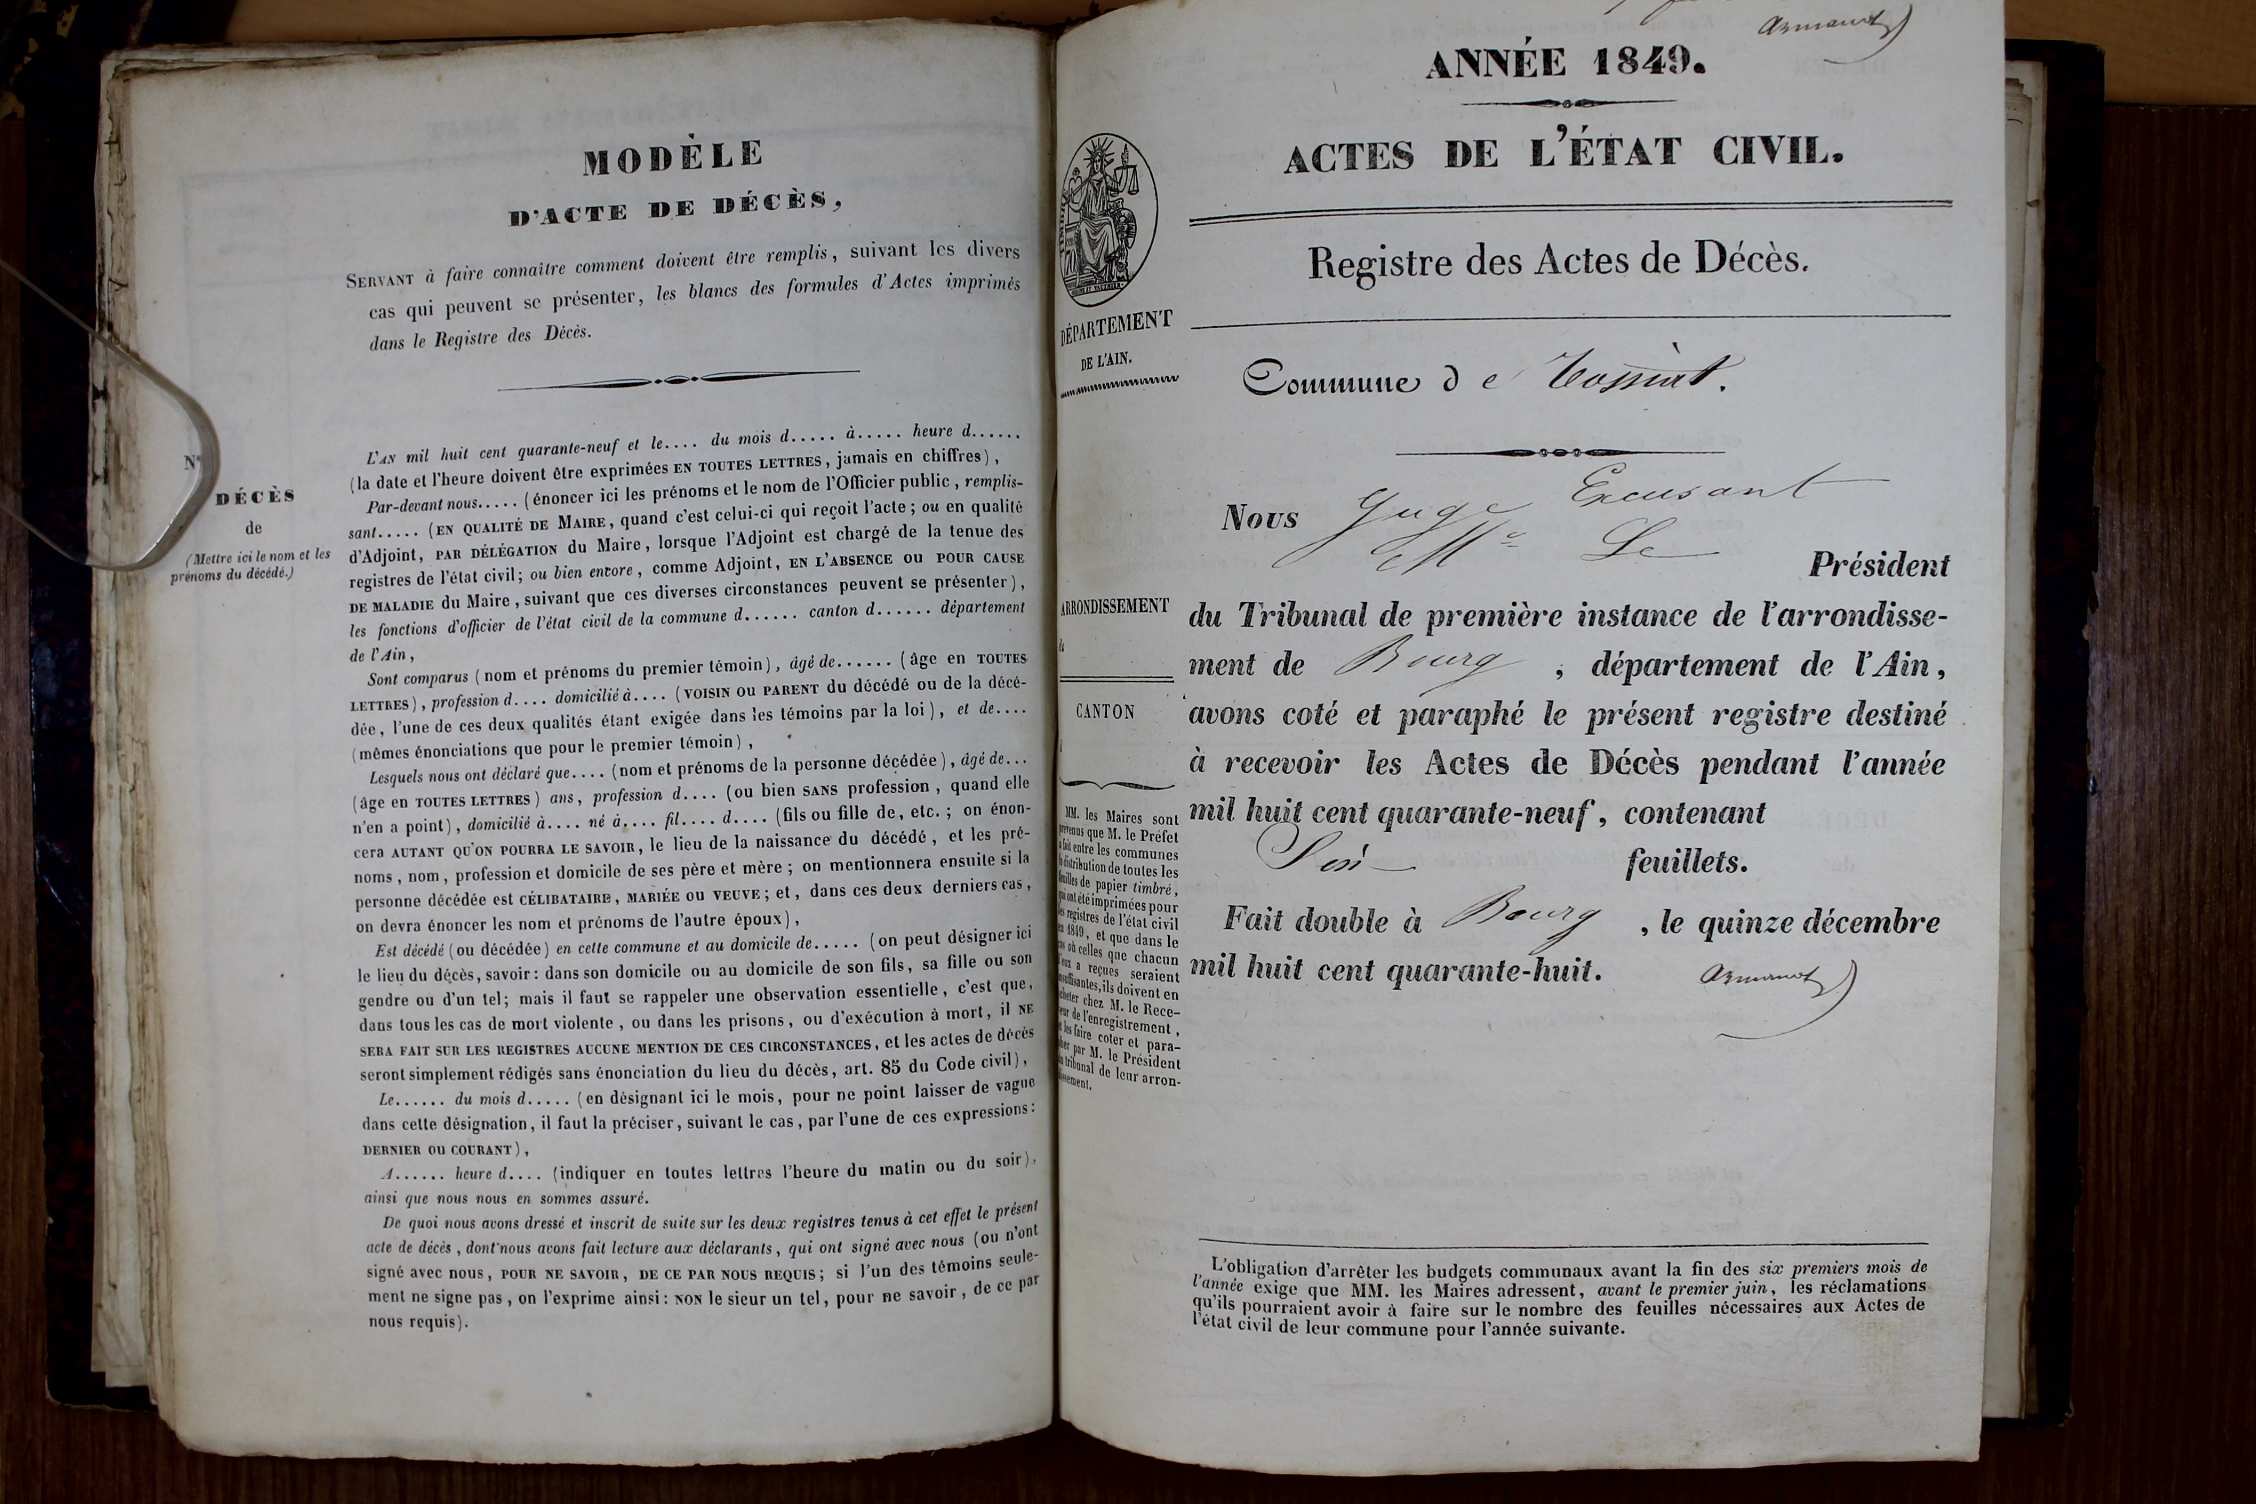 MODÈLE
D'ACTE DE DÉCÈS,
SERVANT à faire connaître comment doivent être remplis, suivant les divers
cas qui peuvent se présenter, les blancs des formules d'Actes imprimés
dans le Registre des Décès.
N°
DÉCÈS
de
(Mettre ici le nom et les
prénoms du décédé.)
L'AN mil huit cent quarante-neuf et le.... du mois d..... à..... heure d......
(la date et l'heure doivent être exprimées EN TOUTES LETTRES, jamais en chiffres),
Par-devant nous..... (énoncer ici les prénoms et le nom de l'Officier public, remplis-
sant..... (EN QUALITÉ DE MAIRE, quand c'est celui-ci qui reçoit l'acte; ou en qualité
d'Adjoint, PAR DÉLÉGATION du Maire, lorsque l'Adjoint est chargé de la tenue des
registres de l'état civil; ou bien encore, comme Adjoint, EN L'ABSENCE OU POUR CAUSE
DE MALADIE du Maire, suivant que ces diverses circonstances peuvent se présenter),
les fonctions d'officier de l'état civil de la commune d...... canton d...... département
de l'Ain,
Sont comparus (nom et prénoms du premier témoin), âgé de...... (âge en TOUTES
LETTRES), profession d.... domicilié à.... (VOISIN OU PARENT du décédé ou de la décé-
dée, l'une de ces deux qualités étant exigée dans les témoins par la loi), et de....
(mêmes énonciations que pour le premier témoin),
Lesquels nous ont déclaré que.... (nom et prénoms de la personne décédée), âgé de...
(âge en TOUTES LETTRES) ans, profession d.... (ou bien SANS profession, quand elle
n'en a point), domicilié à.... né à.... fil.... d.... (fils ou fille de, etc.; on énon-
cera AUTANT QU'ON POURRA LE SAVOIR, le lieu de la naissance du décédé, et les pré-
noms, nom, profession et domicile de ses père et mère; on mentionnera ensuite si la
personne décédée est CÉLIBATAIRE, MARIÉE OU VEUVE; et, dans ces deux derniers cas,
on devra énoncer les nom et prénoms de l'autre époux),
Est décédé (ou décédée) en cette commune et au domicile de..... (on peut désigner ici
le lieu du décès, savoir: dans son domicile ou au domicile de son fils, sa fille ou son
gendre ou d'un tel; mais il faut se rappeler une observation essentielle, c'est que,
dans tous les cas de mort violente, ou dans les prisons, ou d'exécution à mort, il NE
SERA FAIT SUR LES REGISTRES AUCUNE MENTION DE CES CIRCONSTANCES, et les actes de décès
seront simplement rédigés sans énonciation du lieu du décès, art. 85 du Code civil),
Le...... du mois d..... (en désignant ici le mois, pour ne point laisser de vague
dans cette désignation, il faut la préciser, suivant le cas, par l'une de ces expressions:
DERNIER OU COURANT),
A...... heure d.... (indiquer en toutes lettres l'heure du matin ou du soir),
ainsi que nous nous en sommes assuré.
De quoi nous avons dressé et inscrit de suite sur les deux registres tenus à cet effet le présent
acte de décès, dont nous avons fait lecture aux déclarants, qui ont signé avec nous (ou n'ont
signé avec nous, POUR NE SAVOIR, DE CE PAR NOUS REQUIS; si l'un des témoins seule-
ment ne signe pas, on l'exprime ainsi: NON le sieur un tel, pour ne savoir, de ce par
nous requis).
ANNÉE 1849.
ACTES DE L'ÉTAT CIVIL.
Registre des Actes de Décès.
DÉPARTEMENT
DE L'AIN.
Commune de Tossiat.
Nous Juge Excusant
Mr Le
Président
du Tribunal de première instance de l'arrondisse-
ment de Bourg, département de l'Ain,
avons coté et paraphé le présent registre destiné
à recevoir les Actes de Décès pendant l'année
mil huit cent quarante-neuf, contenant
feuillets.
Fait double à Bourg, le quinze décembre
mil huit cent quarante-huit.
ARRONDISSEMENT
CANTON
MM. les Maires sont
prévenus que M. le Préfet
a fait entre les communes
la distribution de toutes les
feuilles de papier timbré,
qui ont été imprimées pour
les registres de l'état civil
en 1849, et que dans le
cas où celles que chacun
d'eux a reçues seraient
insuffisantes, ils doivent en
acheter chez M. le Rece-
veur de l'enregistrement,
et les faire coter et para-
pher par M. le Président
du tribunal de leur arron-
dissement.
L'obligation d'arrêter les budgets communaux avant la fin des six premiers mois de
l'année exige que MM. les Maires adressent, avant le premier juin, les réclamations
qu'ils pourraient avoir à faire sur le nombre des feuilles nécessaires aux Actes de
l'état civil de leur commune pour l'année suivante.